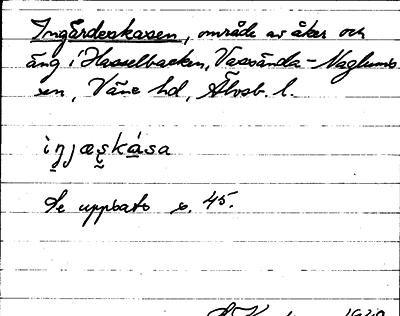 Ingärdeskasen, område av åker och
äng i Hasselbacken, Vassända-Naglums
sn, Väne hd, Älvsb. l.
iŋjæskása
Se uppsats s. 45.
1940